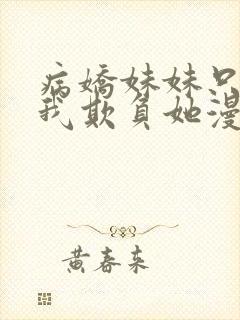 病嬌妹妹只
我欺負她漫
黃春來